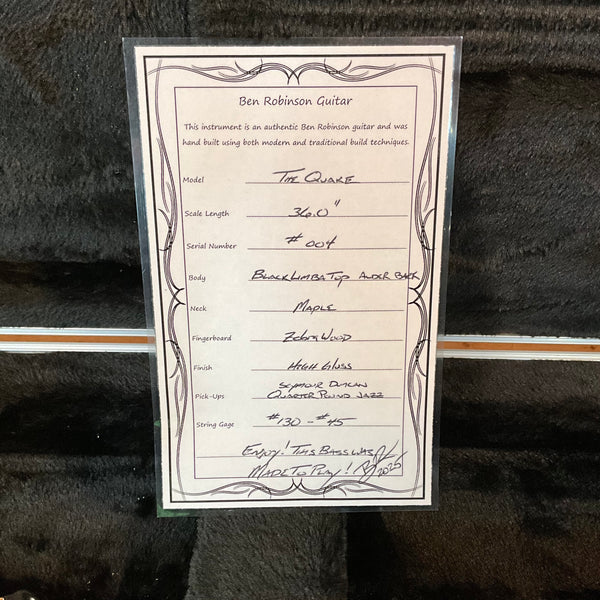 Ben Robinson Guitar
This instrument is an authentic Ben Robinson guitar and was
hand built using both modern and traditional build techniques.
Model The Quake
Scale Length 36.0"
Serial Number # 004
Body Black Limba Top Alder Back
Neck Maple
Fingerboard Zebra Wood
Finish High Gloss
Seymour Duncan
Pick-Ups Quarter Pound Jazz
String Gage #130 - #45
Enjoy! This Bass was
Made To Play! 2025